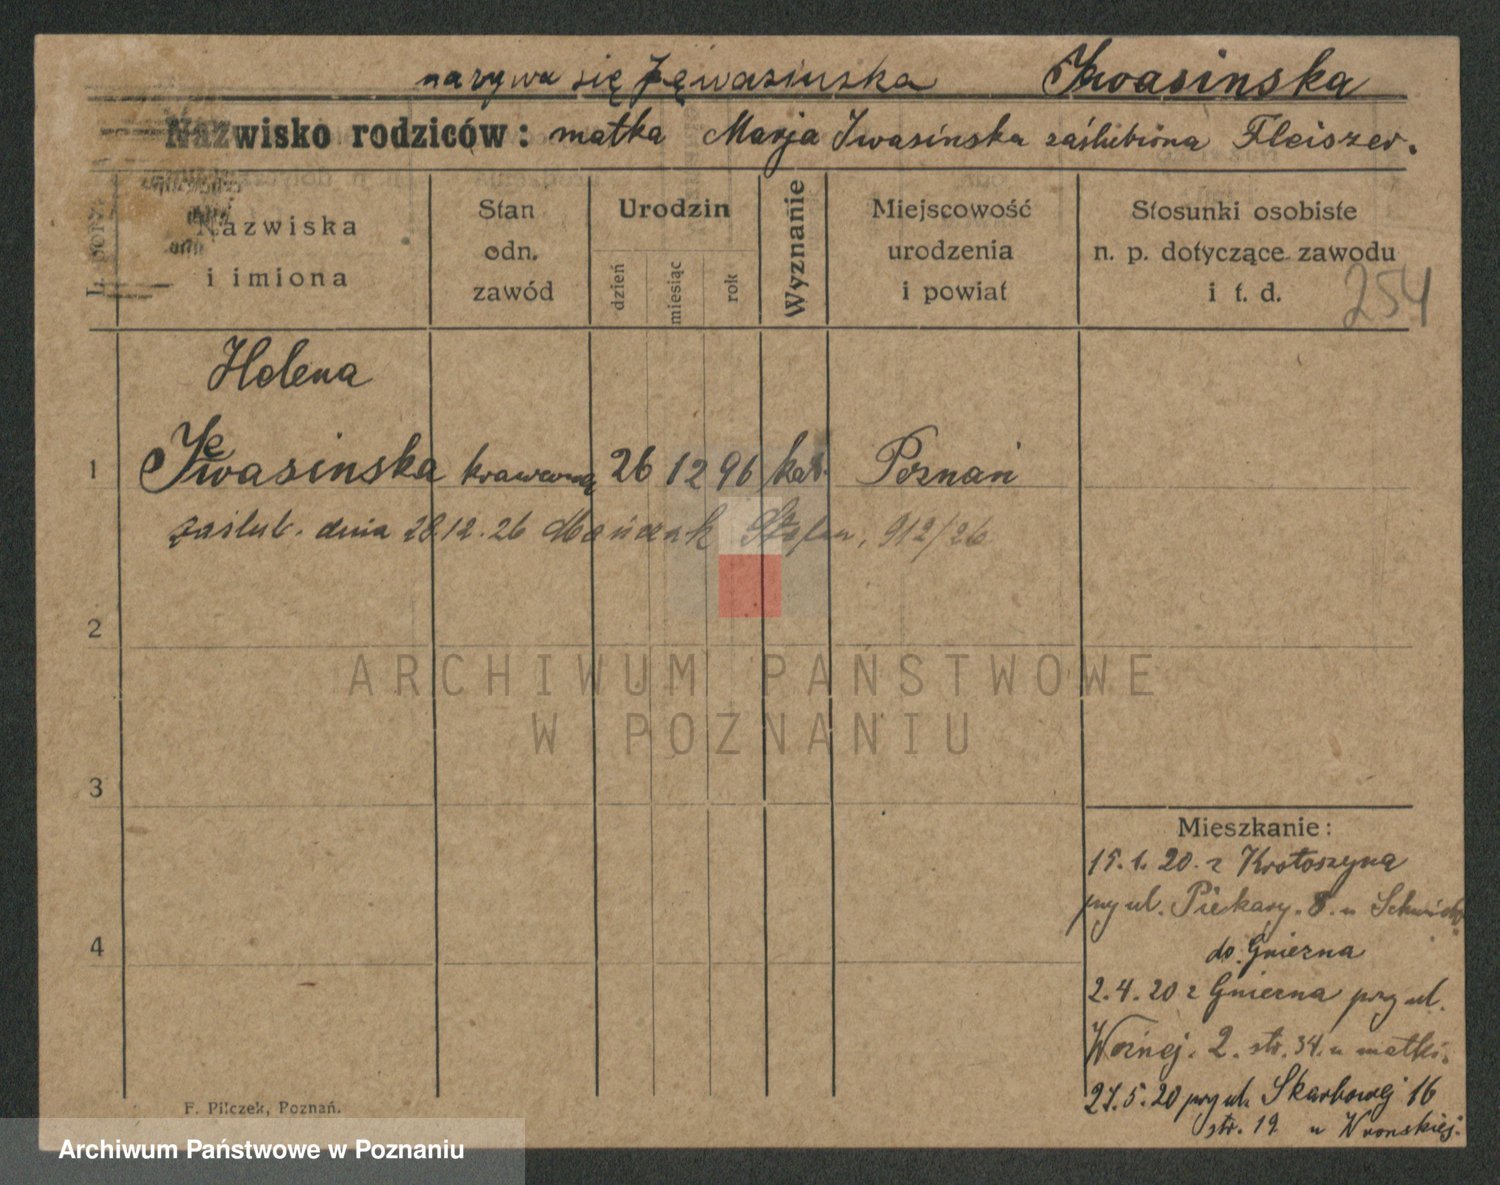 nazywa się Jęwasinska Iwasinska
Nazwisko rodziców: matka Marja Iwasinska zaślubiona Fleiszer.
Nazwiska
i imiona
Stan
odn.
zawód
Urodzin
dzień
miesiąc
rok
Wyznanie
Miejscowość
urodzenia
i powiat
Stosunki osobiste
n. p. dotyczące zawodu
i t. d.
254
Helena
1 Iwasinska 26 12 96 kat. Poznań
zaślub. dnia 28.12.26 Mańczak Stefan, 912/26
2
3
4
Mieszkanie:
15.1.20. z Krotoszyna
przy ul. Piekary. 8. u
do Gniezna
2.4.20 z Gniezna przy ul.
Woźnej. 2. str. 34. u matki.
27.5.20 przy ul. Skarbowej 16
str. 19 u Wronskiej.
F. Pilczek, Poznań.
ARCHIWUM PAŃSTWOWE
W POZNANIU
Archiwum Państwowe w Poznaniu